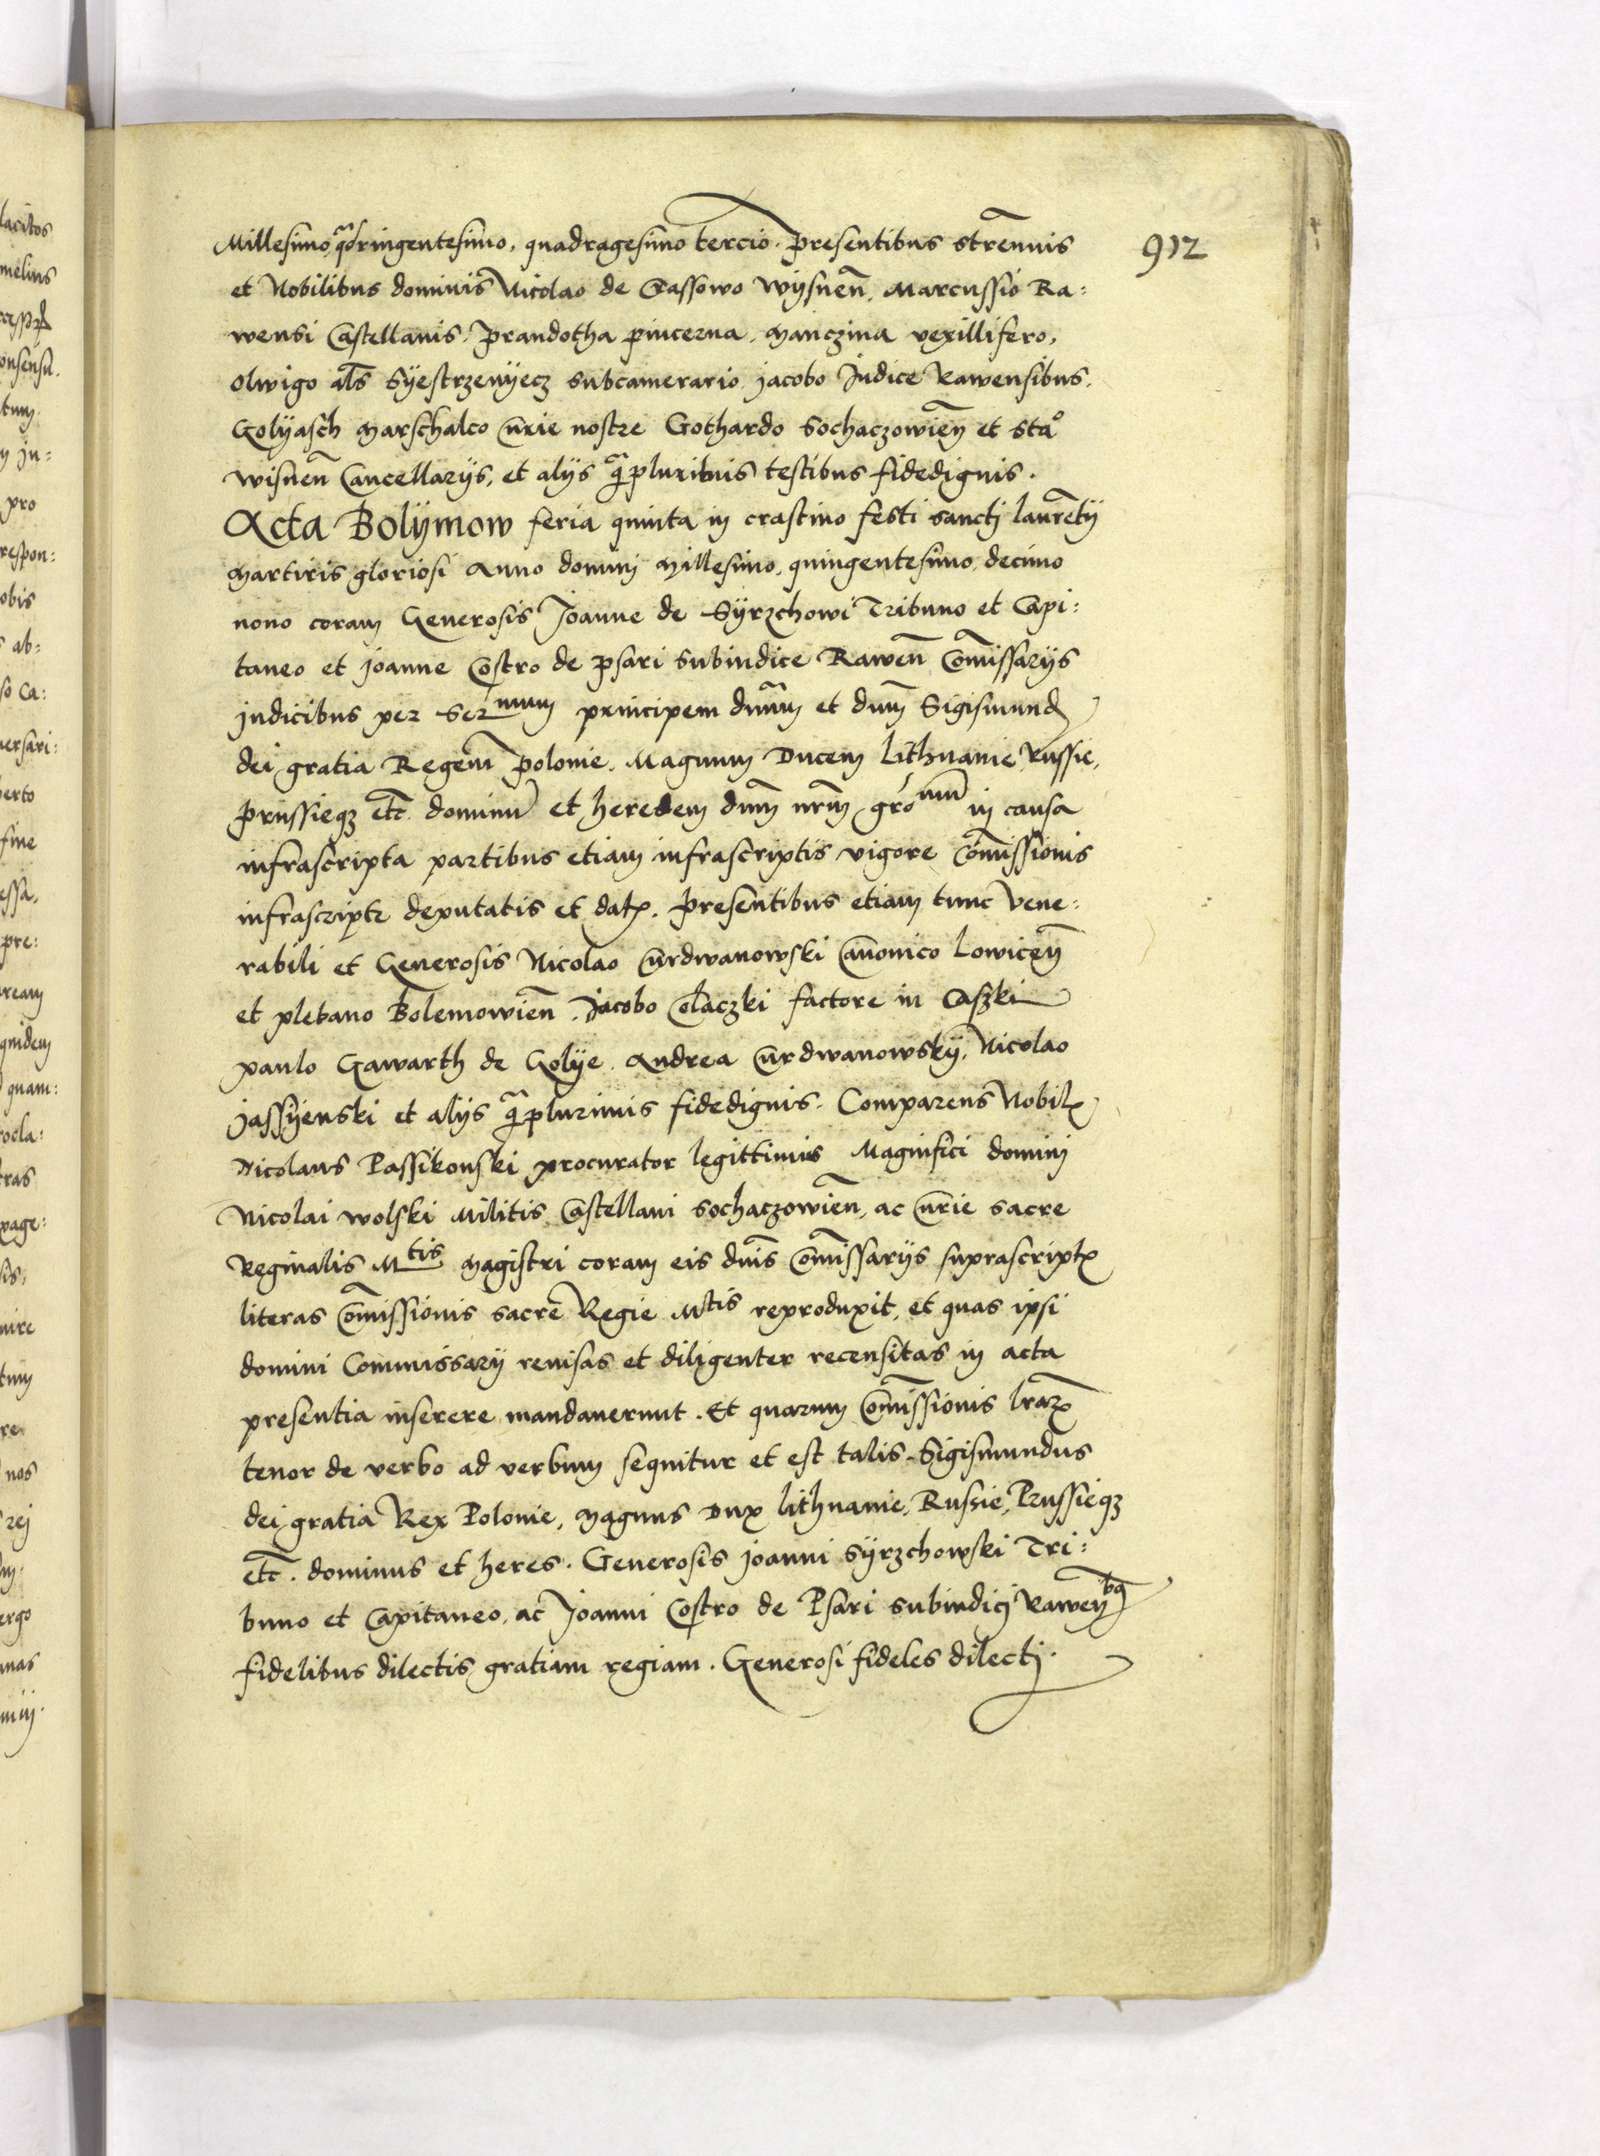 Millesimo, qdringentesimo, quadragesimo tercio. Presentibus strennuis
et Nobilibus dominis Nicolao de Cassowo Wysnen̄, Marcussio Ra:
wensi Castellanis. Prandotha pincerna, Manczina vexillifero,
Olwigo al̄s Syestrzenyecz subcamerario, Jacobo Judice Rawensibus,
Golyasch Marschalco Cūrie nostre Gothardo Sochaczowien̄ et Stao
wisnen̄ Cancellarys, et alys q̄pluribus testibus fidedignis.
Acta Bolymow feria quinta in crastino festi sancti Laurētij
Martiris gloriosi Anno domini Millesimo, quingentesimo, decimo
nono coram Generosis Joanne de Syrzchowi Tribuno et Capi:
taneo et Joanne Costro de Psari Subiudice Rawen̄ Com̄issarijs
Judicibus per Sernmum principem dn̄um et dn̄m Sigismund
dei gratia Regem Polonie. Magnum Ducem Lithuanie Russie,
Prussieqʒ etc̄. dominū et heredem dn̄m nr̄m gronum in causa
infrascripta partibus etiam infrascriptis vigore Com̄issionis
infrascripte deputatis et dat. Presentibus etiam tunc Vene:
rabili et Generosis Nicolao Cūrdwanowski Canonico Lowicen̄
et plebano Bolemowien̄. Jacobo Colaczki factore in Caszki
Paulo Gawarth de Golye. Andrea Cūrdwanowsky, Nicolao
Jassyenski et alys q̄plurimis fidedignis. Comparens Nobil
Nicolaus Passikonski procurator legittimus Magnifici domini
Nicolai Wolski Militis Castellani Sochaczowien̄, ac Cūrie sacre
Reginalis Mtis Magistri coram eis dn̄is Com̄issarijs suprascript
literas Com̄issionis sacre Regie Mtis reproduxit, et quas ipsi
domini Commissarij reuisas et diligenter recensitas in acta
presentia inserere mandauerunt. Et quarum Com̄issionis lr̄arꝝ
tenor de verbo ad verbum sequitur et est talis. Sigismundus
dei gratia Rex Polonie, Magnus Dux Lithuanie, Russie, Prussieqʒ
etc̄. dominus et heres. Generosis Joanni Syrzchowski Tri:
buno et Capitaneo, ac Joanni Costro de Psari Subiudici Rawen̄bq
fidelibus dilectis gratiam regiam. Generosi fideles dilecti.
912